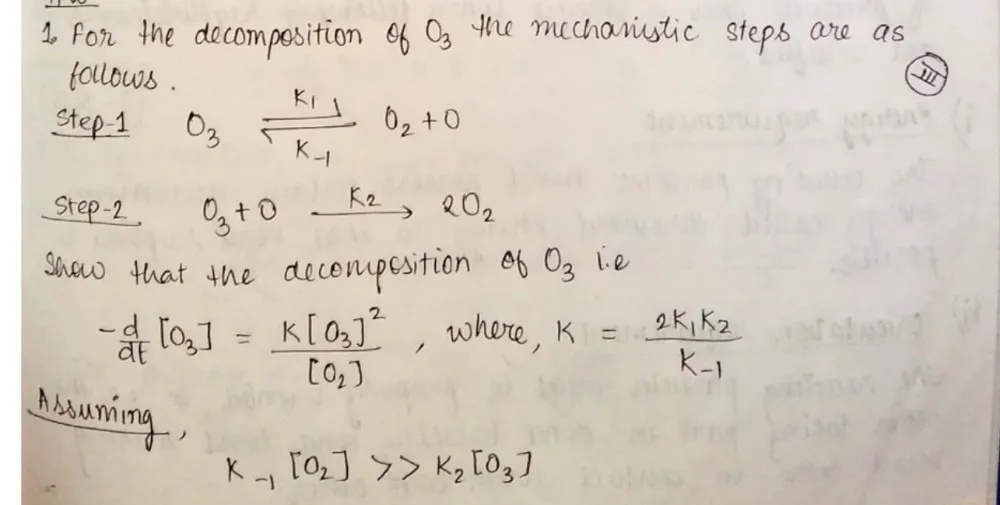 1. For the decomposition of O₃ the mechanistic steps are as
follows.
III
Step-1 O₃ ⇌ O₂ + O
K₁
K₋₁
Step-2 O₃ + O → 2O₂
K₂
Show that the decomposition of O₃ i.e
-d/dt [O₃] = K[O₃]²/[O₂] , where, K = 2K₁K₂/K₋₁
Assuming,
K₋₁ [O₂] >> K₂ [O₃]